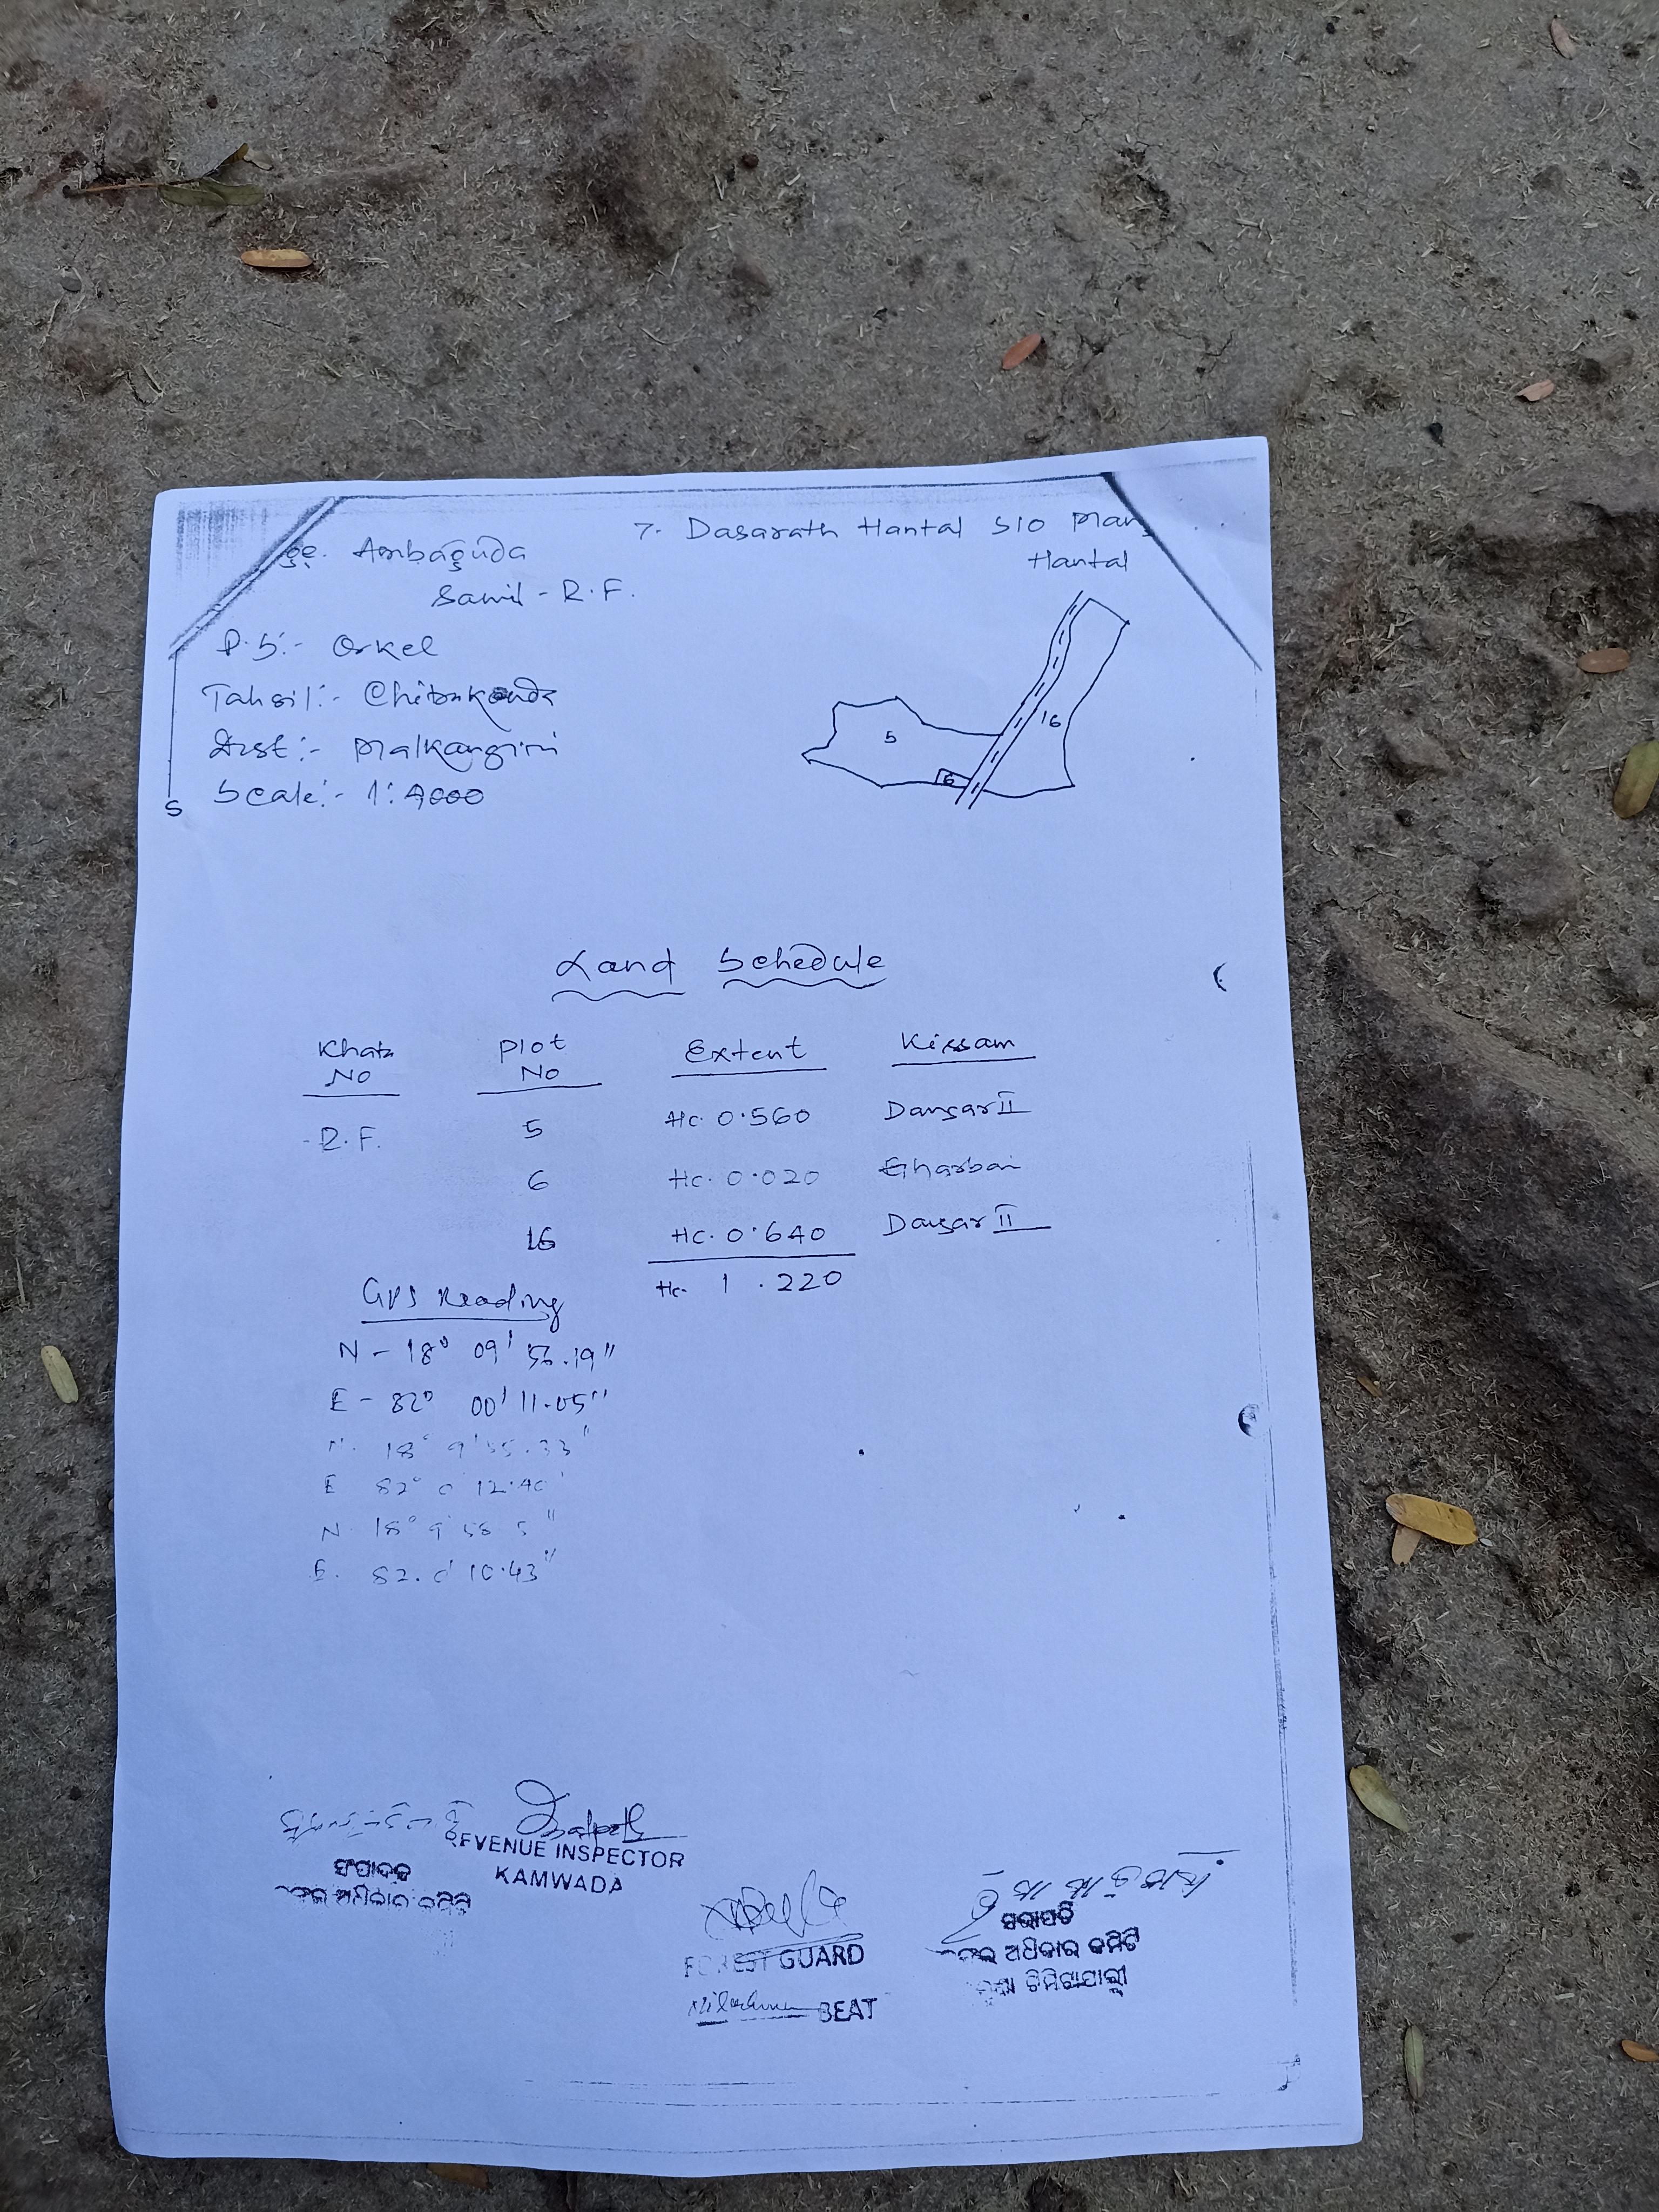 ge. Ambaguda
Samil - R.F.
P.S:- Orkel
Tahsil:- Chitrakonda
Dist:- Malkangiri
Scale:- 1:4000
S
7. Dasarath Hantal S/O Man
Hantal
5
6
16
Land Schedule
Khata No Plot No Extent Kissam
R.F. 5 Hc. 0.560 Dangar II
6 Hc. 0.020 Gharbari
16 Hc. 0.640 Dangar II
Hc. 1.220
GPS Reading
N - 18° 09' 56.19"
E - 82° 00' 11.05"
N. 18° 9' 55.33"
E 82° 0 12.40'
N. 18° 9' 58 5"
E. 82. 0' 10.43"
REVENUE INSPECTOR
KAMWADA
ସଂପାଦକ
ଅଧିକାର କମିଟି
FOREST GUARD
BEAT
ସଭାପତି
ଅଧିକାର କମିଟି